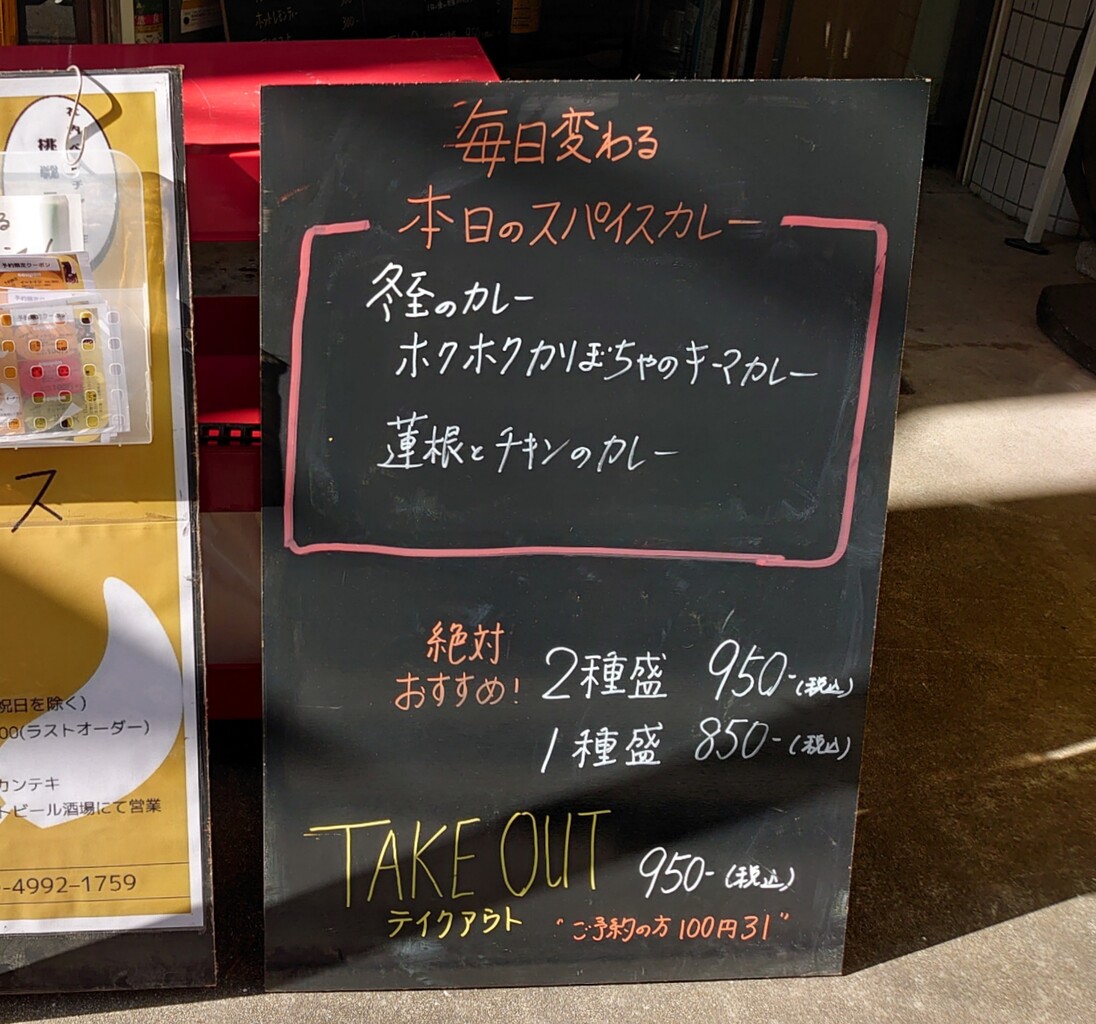 毎日変わる
本日のスパイスカレー
冬至のカレー
ホクホクかぼちゃのキーマカレー
蓮根とチキンのカレー
絶対
おすすめ! 2種盛 950-(税込)
1種盛 850-(税込)
TAKE OUT 950-(税込)
テイクアウト "ご予約の方100円引"
挑戦
る
ス
祝日を除く)
00(ラストオーダー)
カンテキ
トビール酒場にて営業
-4992-1759